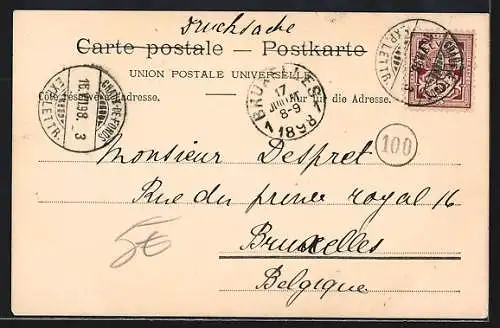 Drucksache
Carte postale — Postkarte
UNION POSTALE UNIVERSELLE
Côté réservé à l'adresse. Nur für die Adresse.
CHAUX-DE-FONDS
16.VII.98. 3
EXP. LETTR.
BRUXELLES
17
JUIL
8-9
1898
CHAUX
EXP. LETTR.
100
Monsieur Despret
Rue du prince royal 16
Bruxelles
Belgique